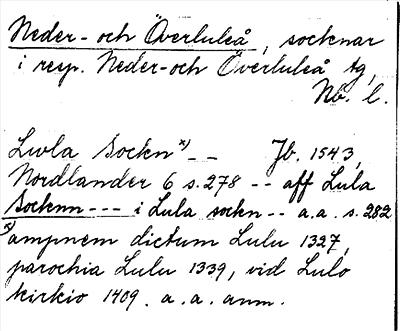 Neder- och Överluleå, socknar
i resp. Neder- och Överluleå tg,
Nb. l.
Lwla Sockn x) -- Jb. 1543,
Nordlander 6 s. 278 -- aff Lula
Socknn --- i Lula sockn -- a.a. s. 282
x) ampnem dictum Lulu 1327,
parochia Lulu 1339, vid Lulo
kirkio 1409. a. a. anm.